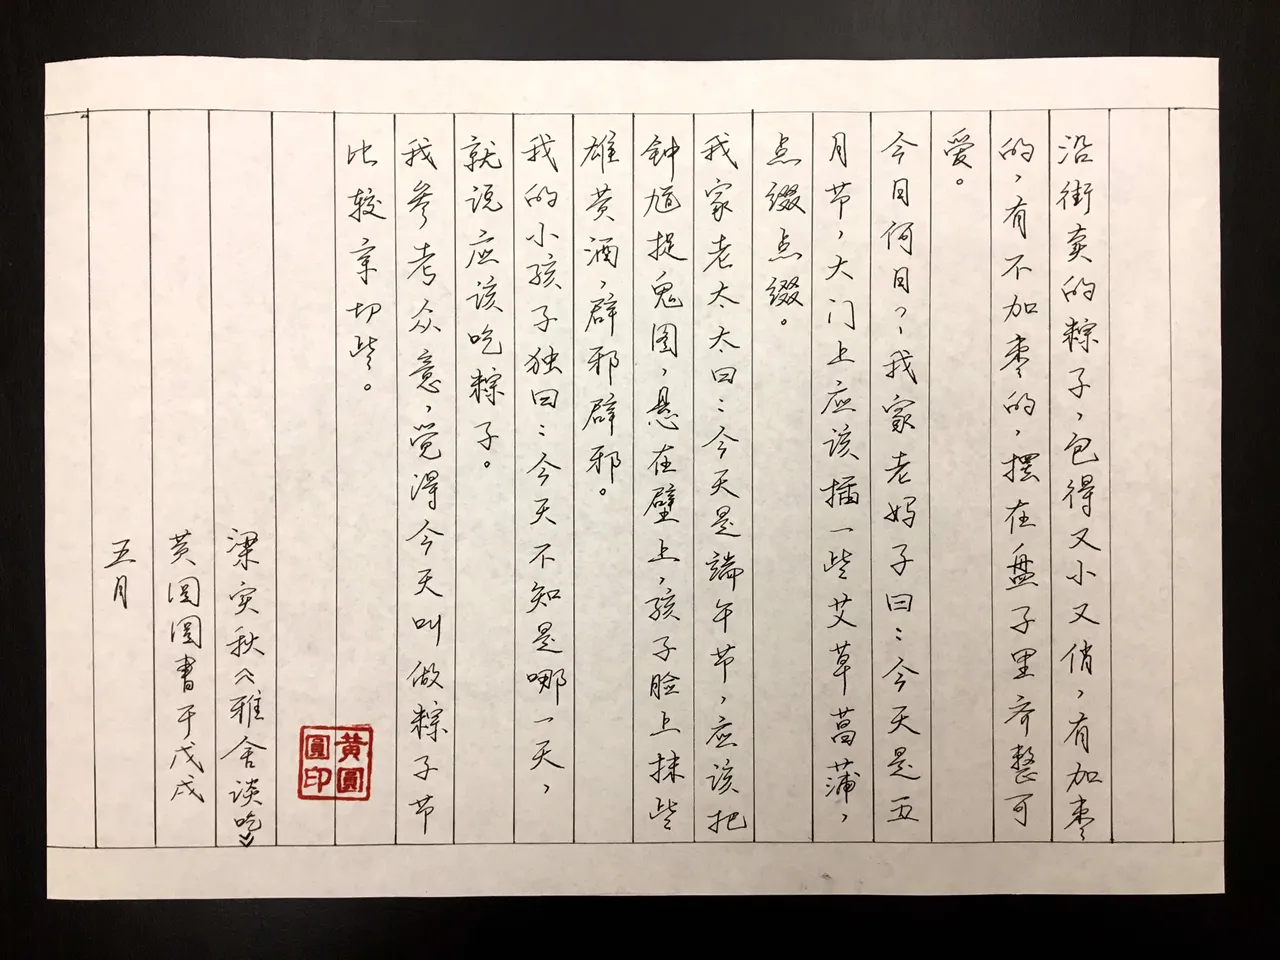 沿街卖的粽子，包得又小又俏，有加枣
的，有不加枣的，摆在盘子里齐整可
爱。
今日何日？我家老妈子曰：今天是五
月节，大门上应该插一些艾草菖蒲，
点缀点缀。
我家老太太曰：今天是端午节，应该把
钟馗捉鬼图，悬在壁上，孩子脸上抹些
雄黄酒，辟邪辟邪。
我的小孩子独曰：今天不知是哪一天，
就说应该吃粽子。
我参考众意，觉得今天叫做粽子节
比较亲切些。
梁实秋《雅舍谈吃》
黄圆圆书于戊戌
五月
黄圓
圓印